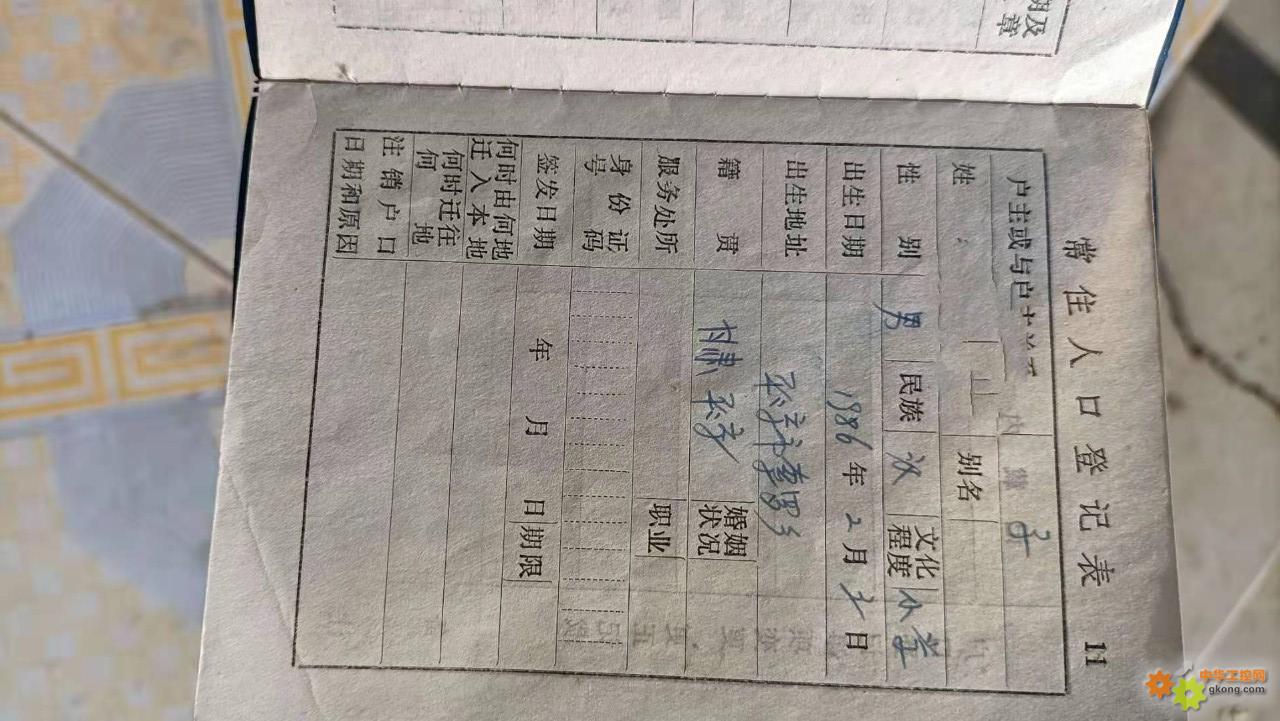 期及
章
常住人口登记表 11
户主或与户主关系 子
姓
别名
性别 男 民族 汉 文化程度 小学
出生日期 1986年2月 日
出生地址
籍贯 甘肃 婚姻状况
服务处所 职业
身份证号码
签发日期 年 月 日 期限
何时由何地迁入本地
何时迁往何地
注销户口日期和原因
中华工控网
gkong.com